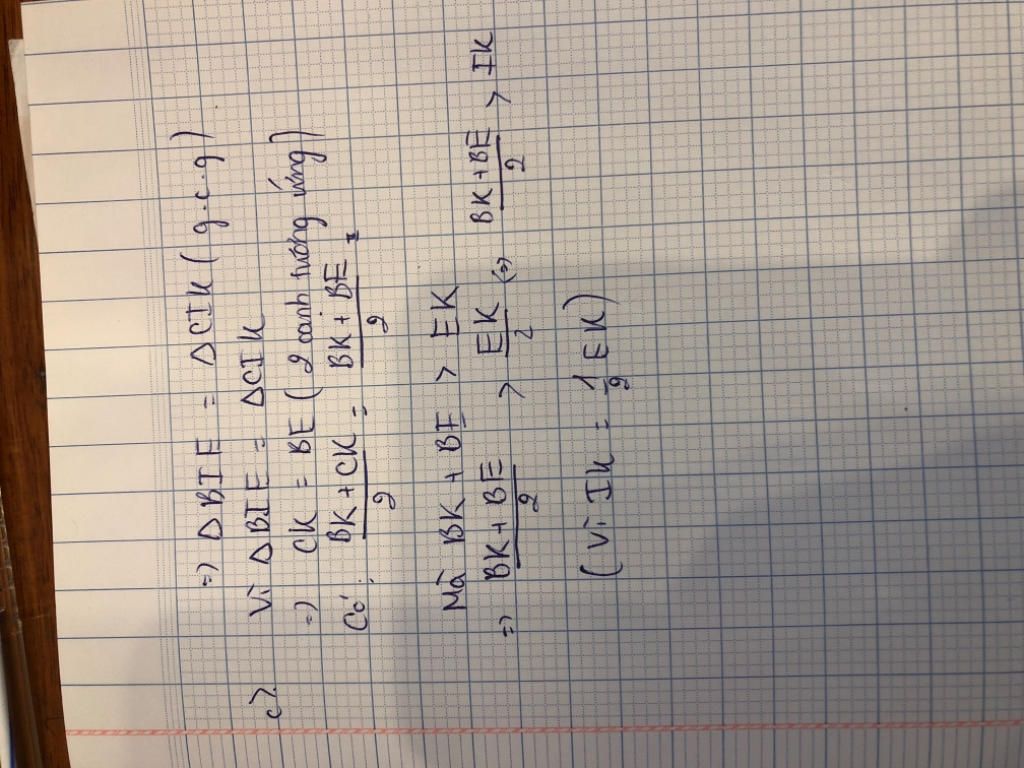 =) Δ BIE = Δ CIK ( g.c.g )
c) Vì Δ BIE = Δ CIK
=) CK = BE ( 2 cạnh tương ứng )
Có: BK + CK / 2 = BK + BE / 2
Mà BK + BE > EK
=) BK + BE / 2 > EK / 2 (=) BK + BE / 2 > IK
( Vì IK = 1/2 EK )